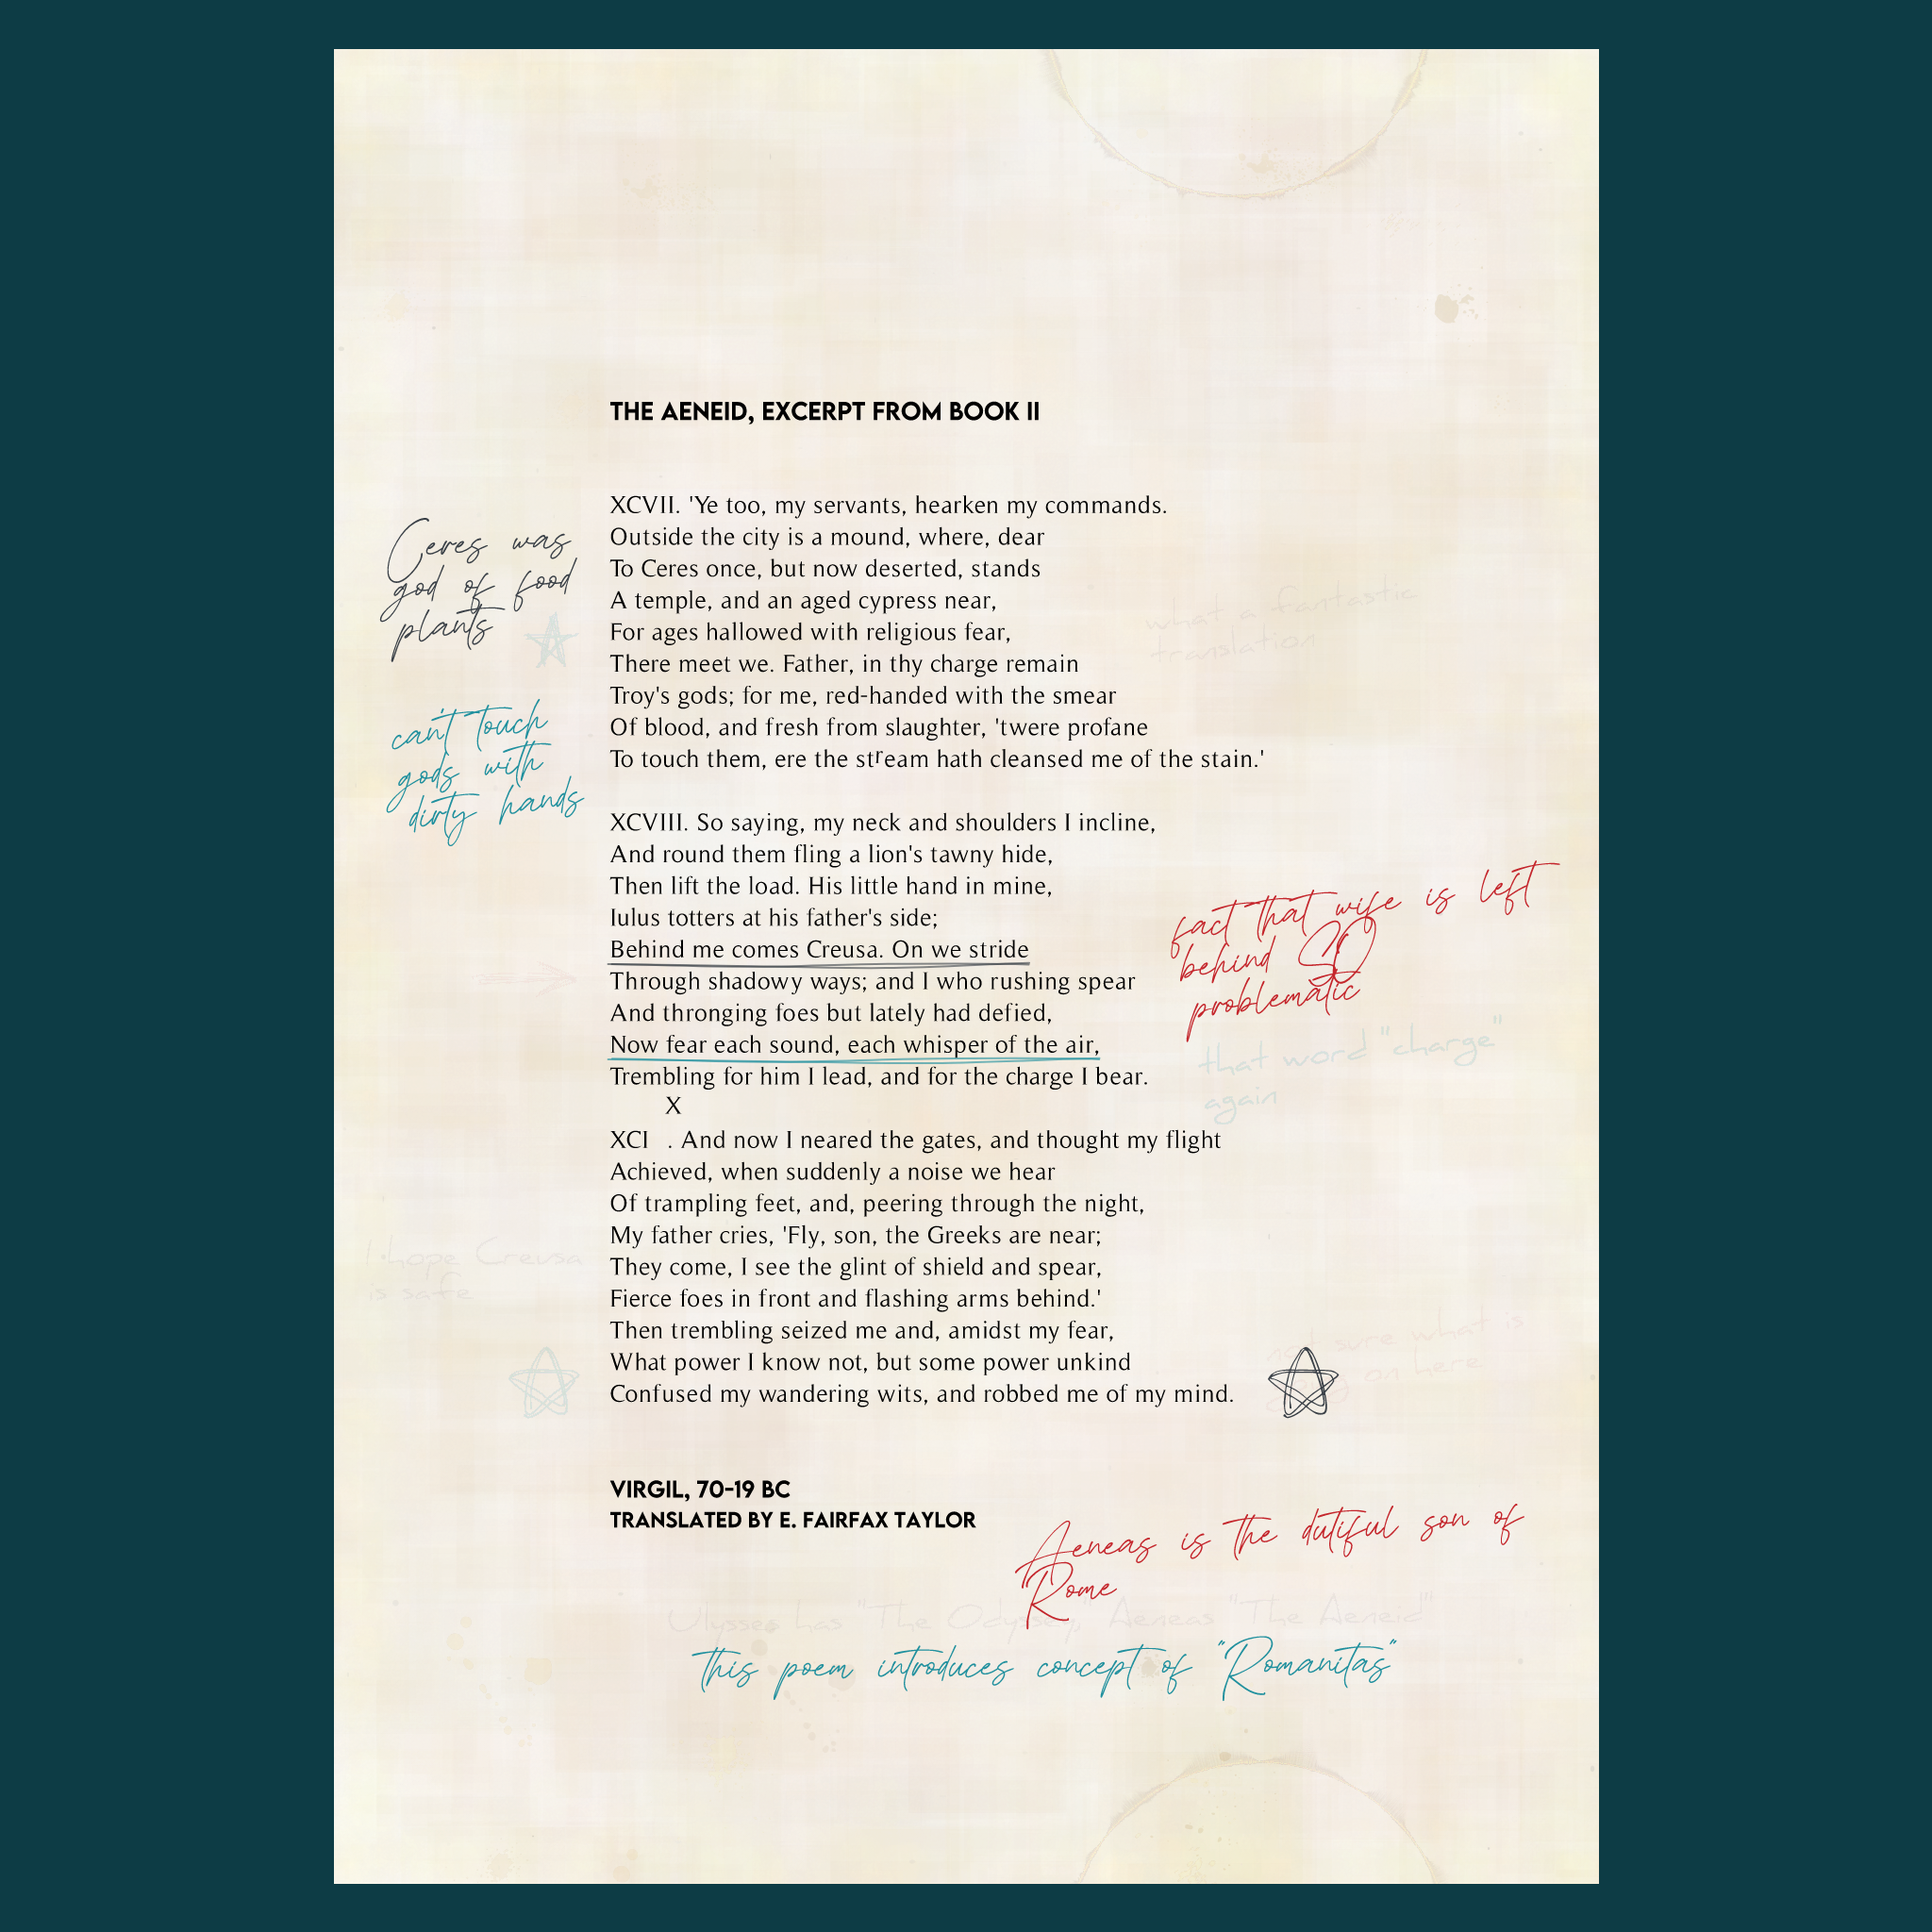 THE AENEID, EXCERPT FROM BOOK II
XCVII. 'Ye too, my servants, hearken my commands.
Outside the city is a mound, where, dear
To Ceres once, but now deserted, stands
A temple, and an aged cypress near,
For ages hallowed with religious fear,
There meet we. Father, in thy charge remain
Troy's gods; for me, red-handed with the smear
Of blood, and fresh from slaughter, 'twere profane
To touch them, ere the stream hath cleansed me of the stain.'
Ceres was
god of food
plants
what a fantastic
translation
can't touch
gods with
dirty hands
XCVIII. So saying, my neck and shoulders I incline,
And round them fling a lion's tawny hide,
Then lift the load. His little hand in mine,
Iulus totters at his father's side;
Behind me comes Creusa. On we stride
Through shadowy ways; and I who rushing spear
And thronging foes but lately had defied,
Now fear each sound, each whisper of the air,
Trembling for him I lead, and for the charge I bear.
fact that wife is left
behind SO
problematic
that word "charge"
again
X
XCI . And now I neared the gates, and thought my flight
Achieved, when suddenly a noise we hear
Of trampling feet, and, peering through the night,
My father cries, 'Fly, son, the Greeks are near;
They come, I see the glint of shield and spear,
Fierce foes in front and flashing arms behind.'
Then trembling seized me and, amidst my fear,
What power I know not, but some power unkind
Confused my wandering wits, and robbed me of my mind.
I hope Creusa
is safe
sure what is
on here
VIRGIL, 70-19 BC
TRANSLATED BY E. FAIRFAX TAYLOR
Aeneas is the dutiful son of
Rome
Ulysses has "The Odyssey," Aeneas "The Aeneid"
this poem introduces concept of "Romanitas"